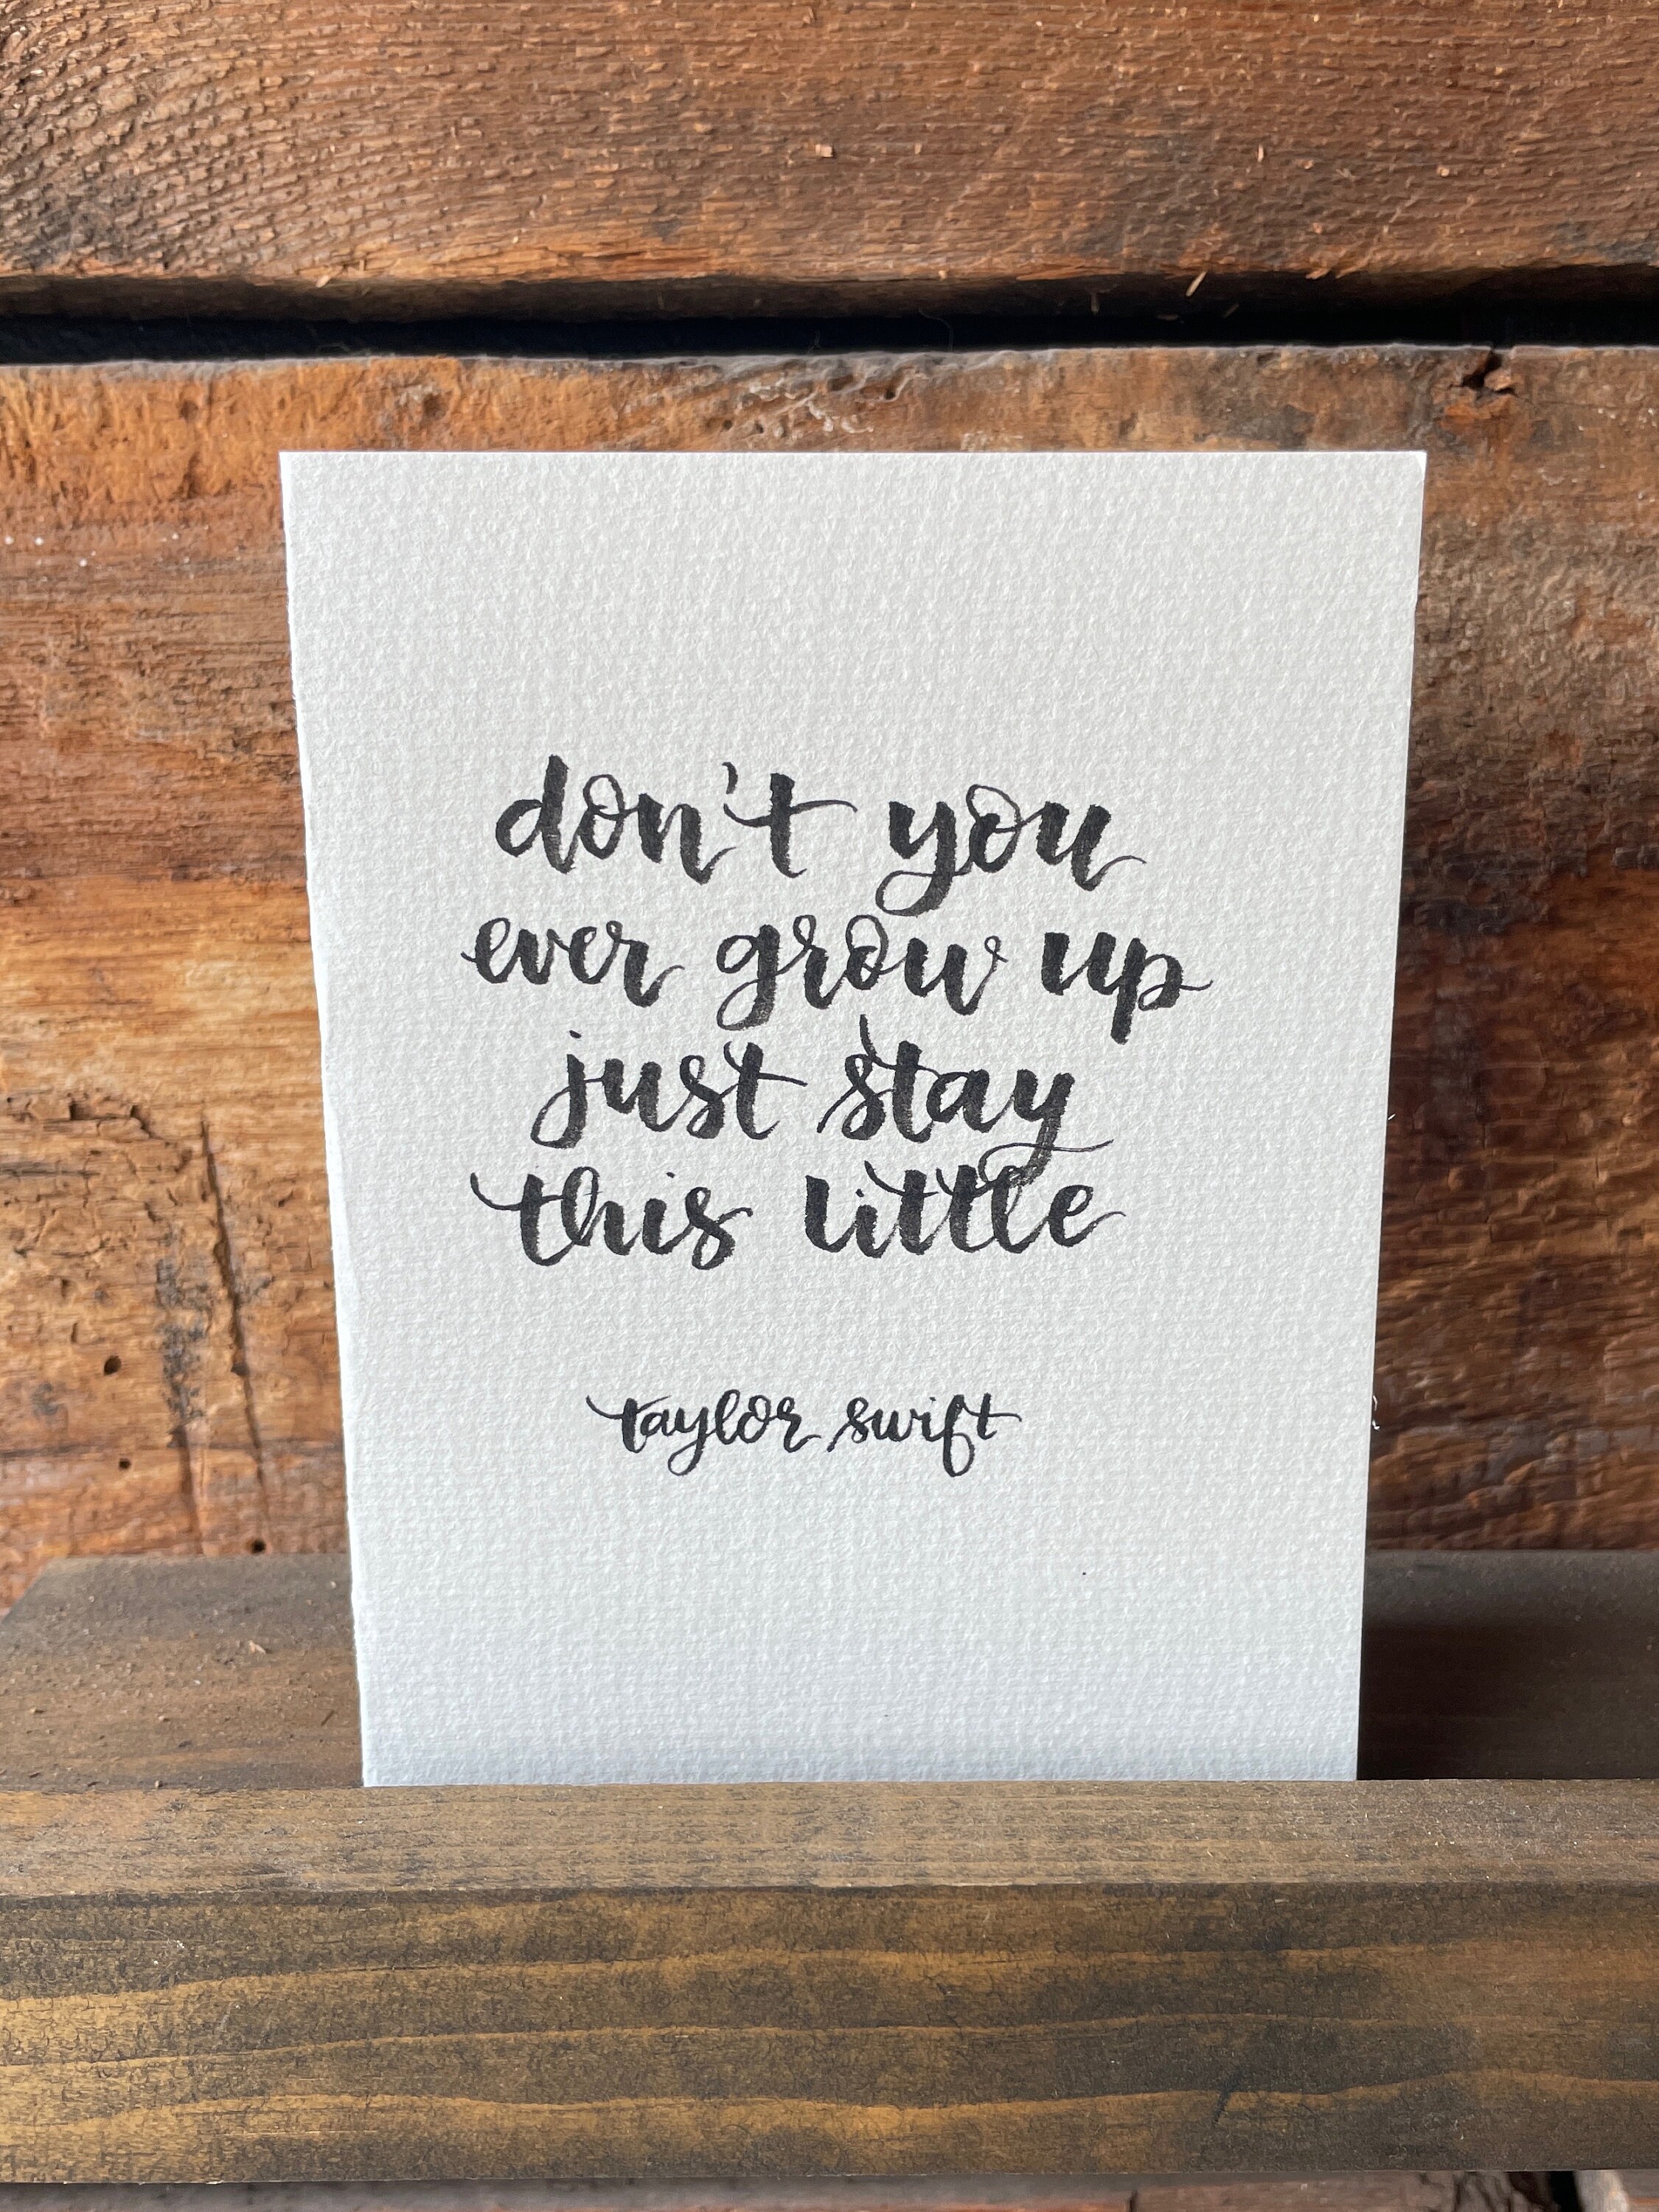 don't you
ever grow up
just stay
this little
taylor swift